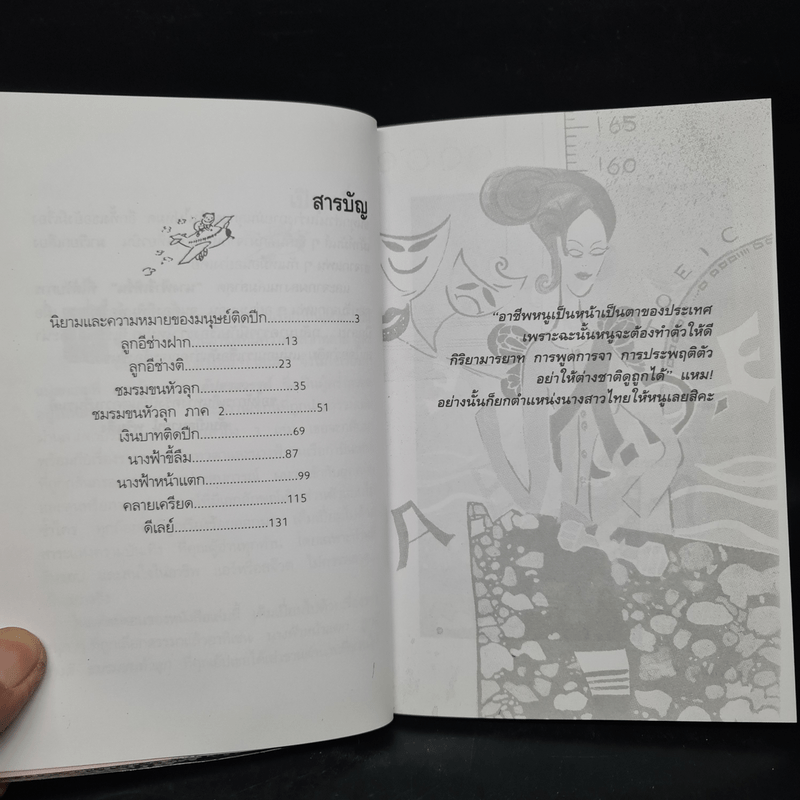 สารบัญ
นิยามและความหมายของมนุษย์ติดปีก.........................3
ลูกอีช่างฝาก...........................13
ลูกอีช่างติ............................23
ชมรมขนหัวลุก...........................35
ชมรมขนหัวลุก ภาค 2..........................51
เงินบาทติดปีก...........................69
นางฟ้าขี้ลืม............................87
นางฟ้าหน้าแตก...........................99
คลายเครียด...........................115
ดีเลย์...........................131
165
160
OEIC
"อาชีพหนูเป็นหน้าเป็นตาของประเทศ
เพราะฉะนั้นหนูจะต้องทำตัวให้ดี
กิริยามารยาท การพูดการจา การประพฤติตัว
อย่าให้ต่างชาติดูถูกได้" แหม!
อย่างนั้นก็ยกตำแหน่งนางสาวไทยให้หนูเลยสิคะ
A